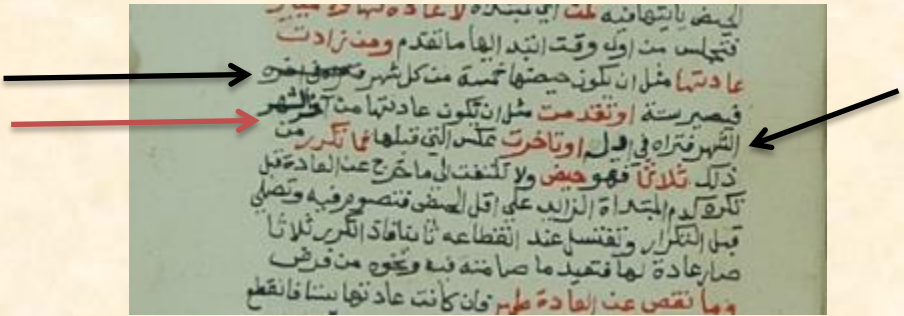 الحيض بانتهائه فيه لمن اي لمبتدأة لا عادة لها ولا تمييز
فتجلس من اول وقت ابتدائها ما تقدم ومن زادت
عادتها مثل ان تكون حيضها خمسة من كل شهر
فيصير ستة او تقدمت مثل ان تكون عادتها من آخر الشهر
الشهر فتراه في اوله او تاخرت عكس التي قبلها فما تكرر من
ذلك ثلاثا فهو حيض ولا تلتفت الى ما خرج عن العادة قبل
تكرره كدم المبتدأة الزايد على اقل الحيض فتصوم فيه وتصلي
قبل التكرار وتغتسل عند انقطاعه ثانيا فاذا تكرر ثلاثا
صار عادة لها فتعيد ما صامته فيه ونحوه من فرض
وما نقص عن العادة طهر فان كانت عادتها ستا فانقطع